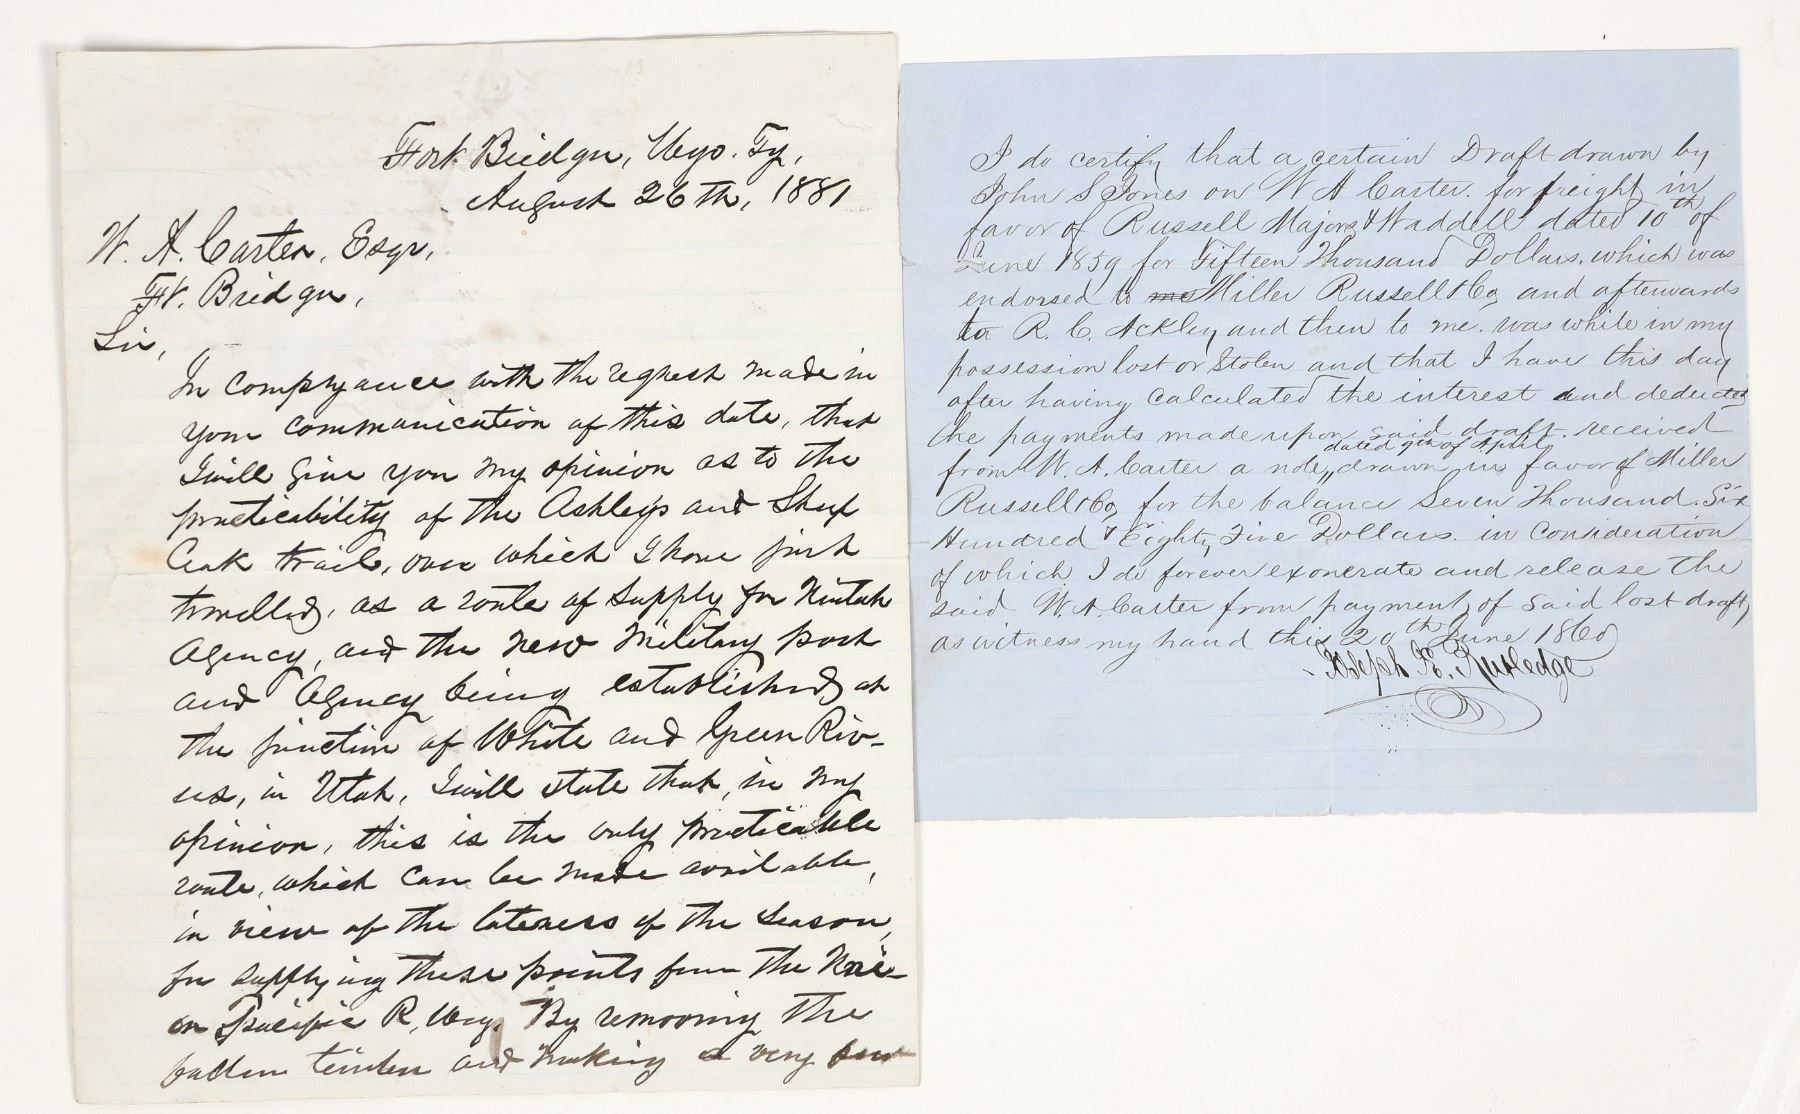 Fort Bridger, Wyo. Ty,
August 26th, 1881
W. A. Carter, Esqr,
Ft. Bridger,
Sir,
In complyance with the request made in
your communication of this date, that
I will give you my opinion as to the
practicability of the Ashley's and Sheep
Creek trail, over which I have just
travelled, as a route of supply for Uintah
Agency, and the new Military post
and Agency being established at
the junction of White and Green Riv-
ers, in Utah, I will state that, in my
opinion, this is the only practicable
route, which can be made available,
in view of the lateness of the season,
for supplying these points from the Uni-
on Pacific R, Way. By removing the
fallen timber and making a very few
I do certify that a certain Draft drawn by
John S Jones on W A Carter. for freight in
favor of Russell Majors & Waddell dated 10th of
June 1859 for Fifteen Thousand Dollars. which was
endorsed to me Miller Russell & Co, and afterwards
to R. C. Ackley and then to me. was while in my
possession lost or Stolen and that I have this day
after having calculated the interest and deducted
the payments made upon said draft. received
dated 9th of April
from W. A. Carter a note, drawn in favor of Miller
Russell & Co, for the balance Seven Thousand. Six
Hundred & Eighty, Five Dollars. in consideration
of which I do forever exonerate and release the
said W. A. Carter from payment, of said lost draft,
as witness my hand this 20th June 1860
Joseph E. Rutledge